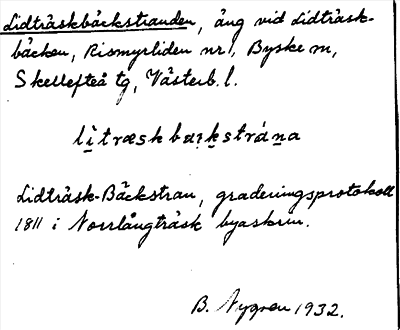 Lidträskbäckstranden, äng vid Lidträsk-
bäcken, Rismyrliden nr 1, Byske m,
Skellefteå tg, Västerb. l.
lìtræskbak̲strán̲a
Lidträsk-Bäckstran, graderingsprotokoll
1811 i Norrlångträsk byaskrin.
B. Nygren 1932.